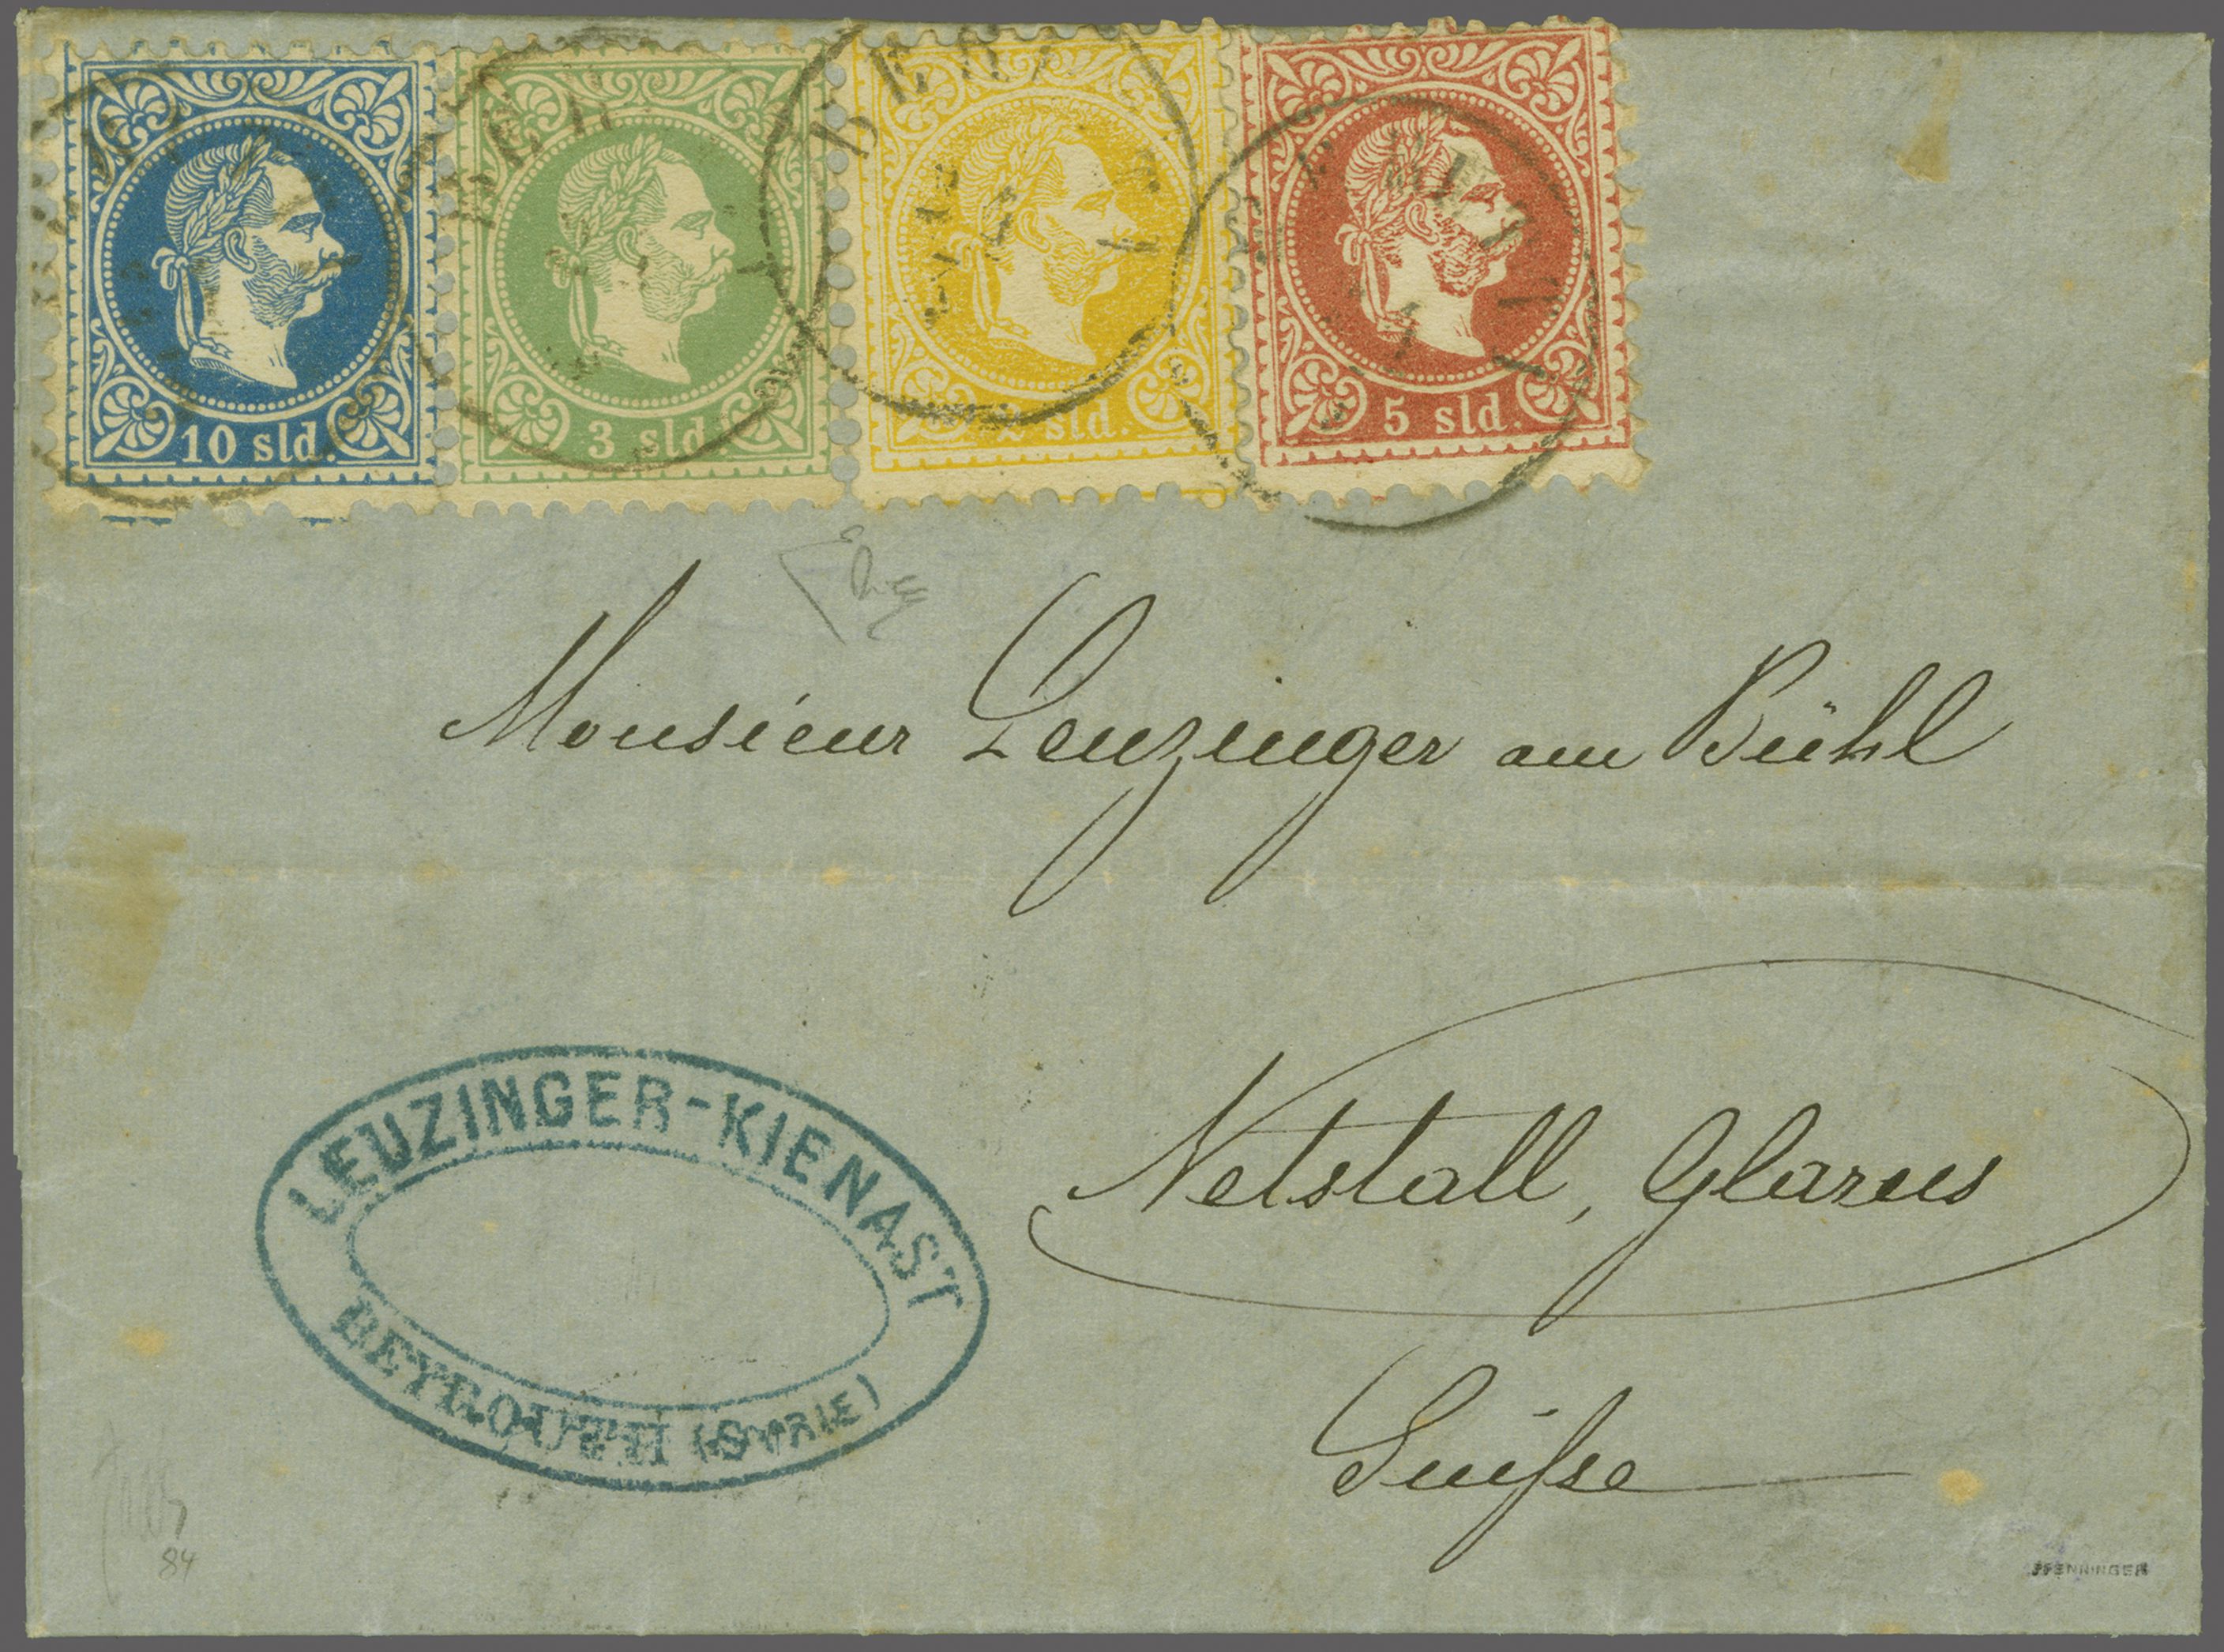 10 sld.
3 sld.
2 sld.
5 sld.
BER
Monsieur Leuzinger am Bühl
Netstall, Glarus
Suisse
LEUZINGER-KIENAST
BEYROUTH (SYRIE)
84
PFENNINGER